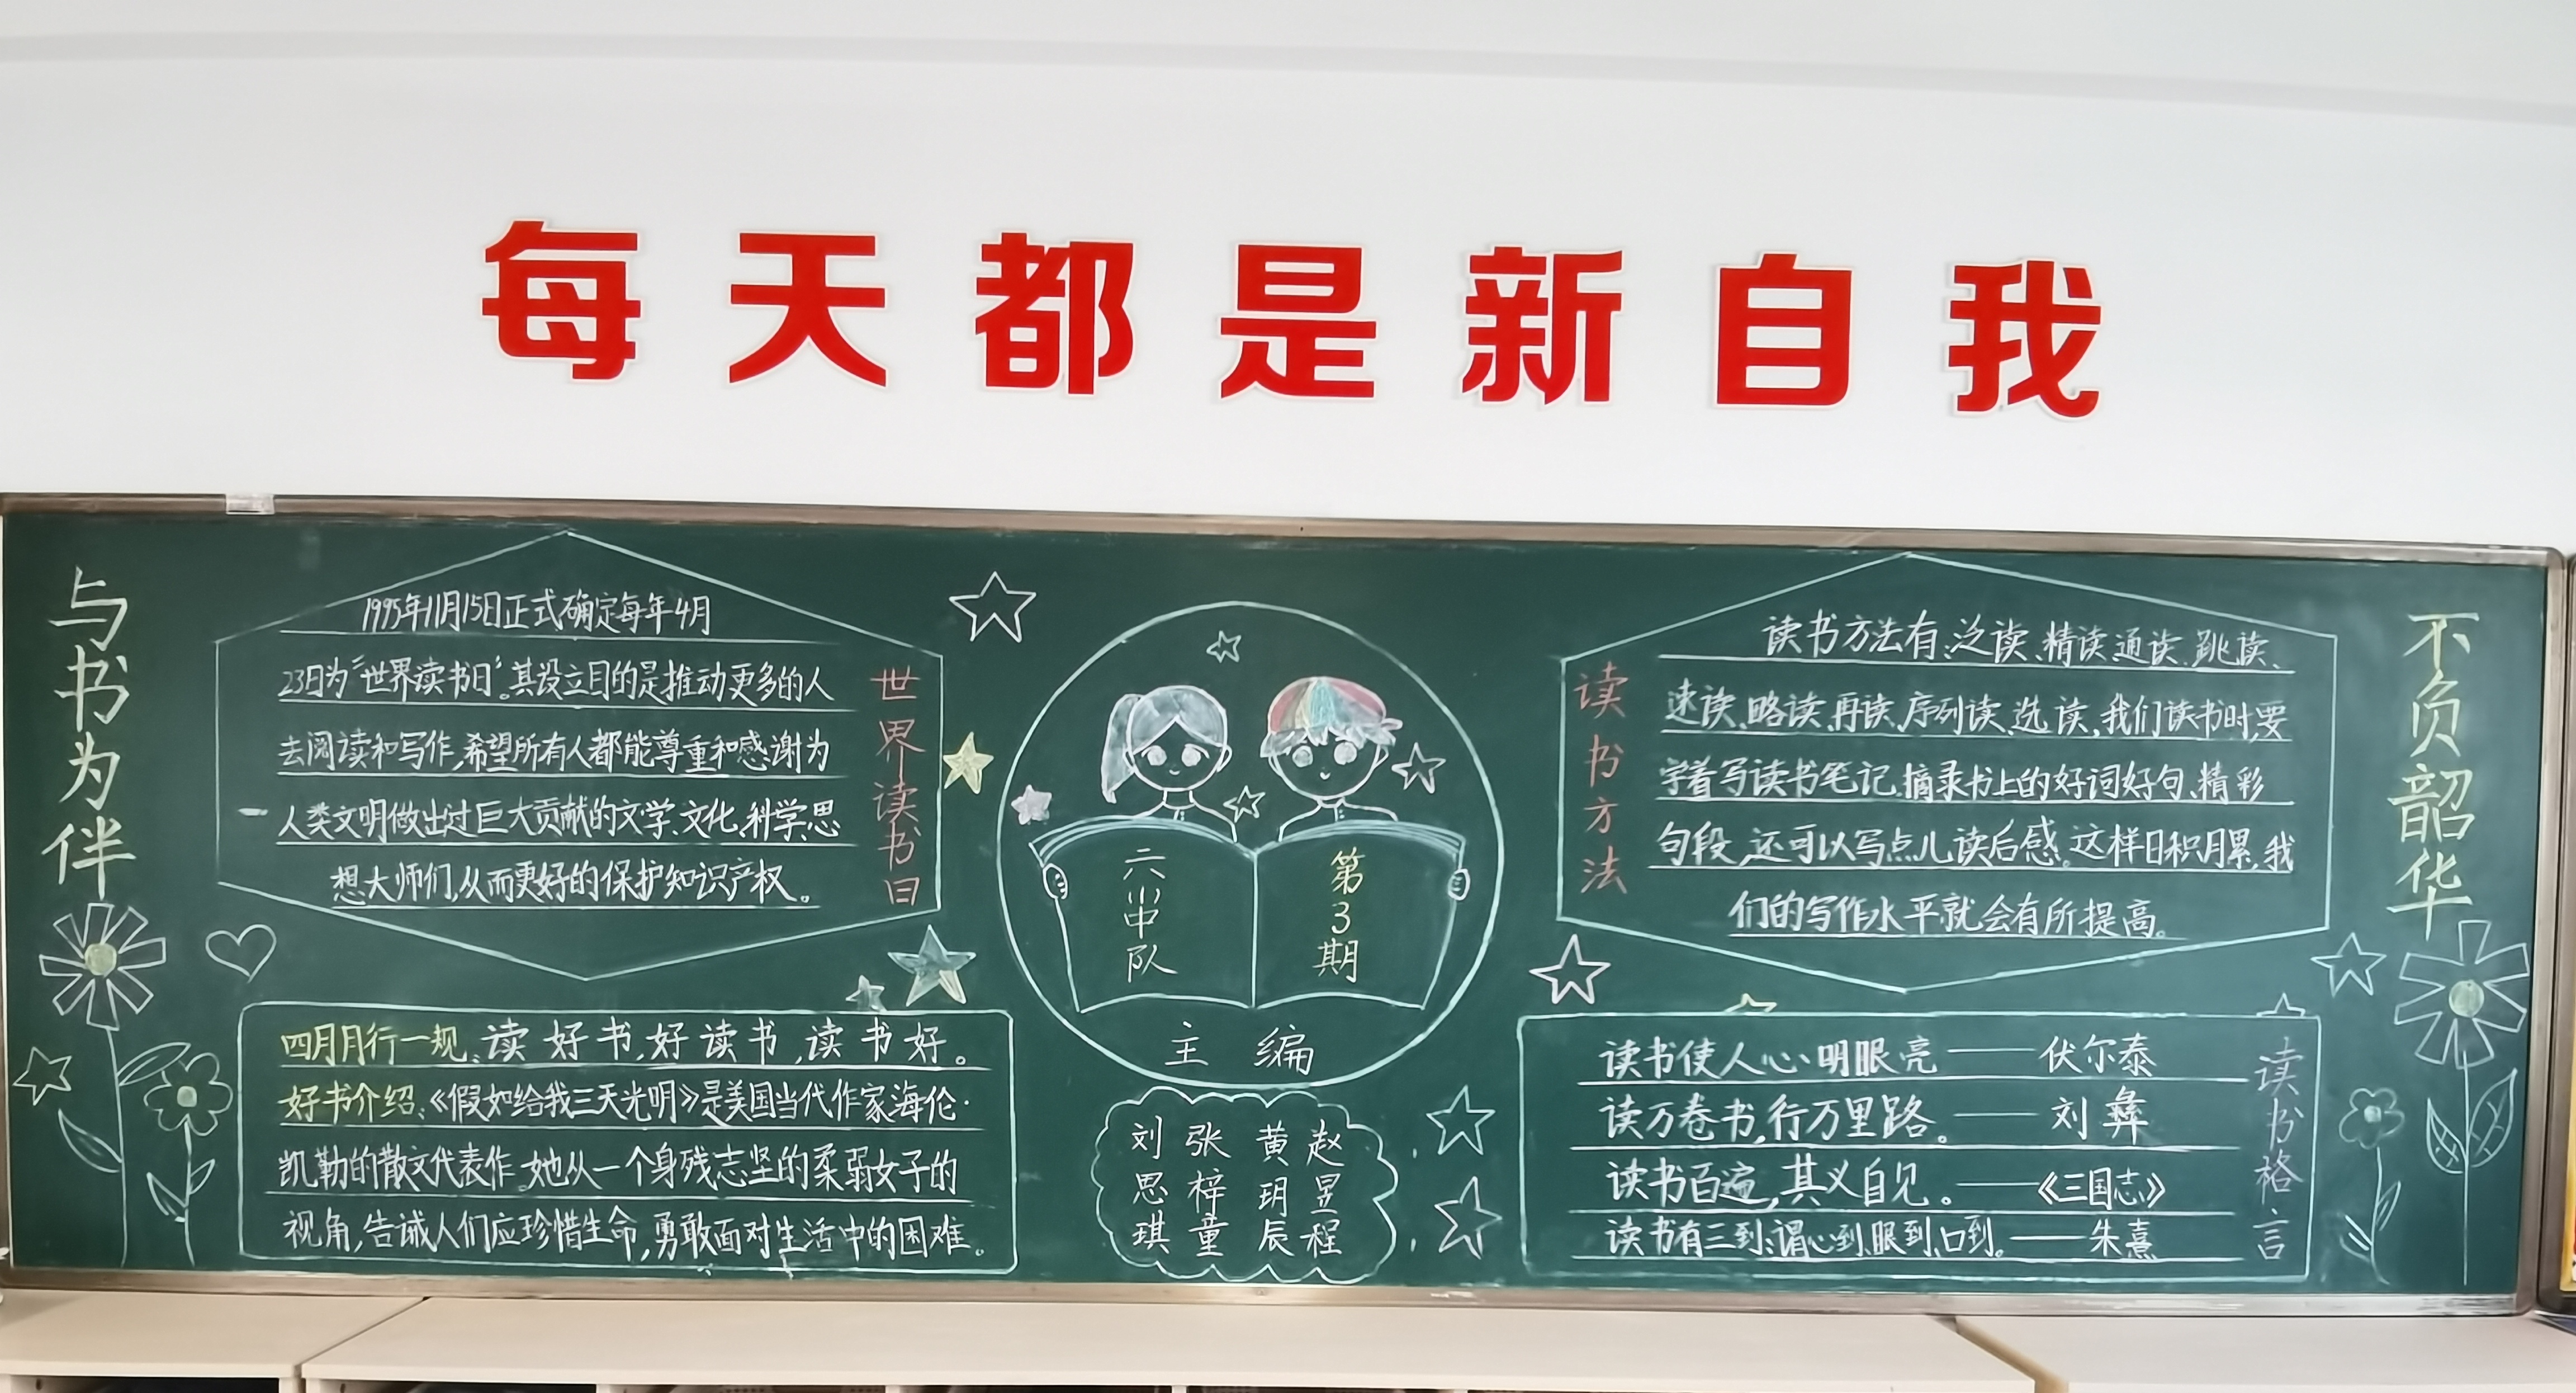 每天都是新自我
与书为伴
1995年11月15日正式确定每年4月
23日为“世界读书日”。其设立目的是推动更多的人
去阅读和写作,希望所有人都能尊重和感谢为
人类文明做出过巨大贡献的文学、文化、科学、思
想大师们,从而更好的保护知识产权。
世界读书日
四月月行一规:读好书,好读书,读书好。
好书介绍:《假如给我三天光明》是美国当代作家海伦·
凯勒的散文代表作。她从一个身残志坚的柔弱女子的
视角,告诫人们应珍惜生命,勇敢面对生活中的困难。
六(1)中队
第3期
主编
刘思琪
张梓童
黄玥辰
赵昱程
读书方法
读书方法有:泛读、精读、通读、跳读、
速读、略读、再读、序列读、选读,我们读书时,要
学着写读书笔记,摘录书上的好词好句、精彩
句段,还可以写点儿读后感。这样日积月累,我
们的写作水平就会有所提高。
读书使人心明眼亮——伏尔泰
读万卷书,行万里路。——刘彝
读书百遍,其义自见。——《三国志》
读书有三到:谓心到、眼到、口到。——朱熹
读书格言
不负韶华